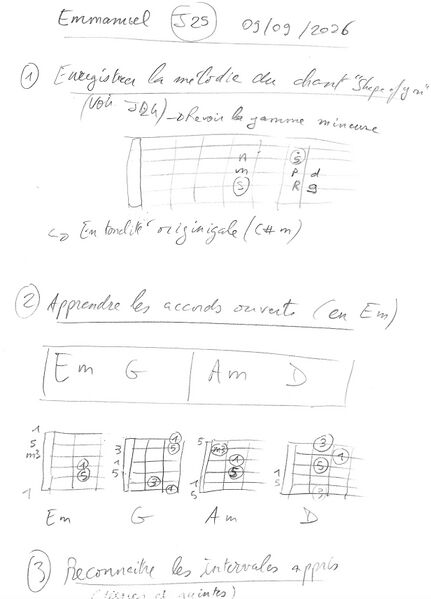 Emmanuel J25 09/09/2026
① Enregistrer la mélodie du chant "Shape of you"
(Voir J24) → Revoir la gamme mineure
n 5
m p d
S R g
↳ En tonalité originigale (C#m)
② Apprendre les accords ouverts (en Em)
Em G Am D
1 5 m3 1 5 1
3 1 5 1 5 3 1
5 1 5 m3 1 5
1 5 3 1 5 3
Em G Am D
③ Reconnaitre les intervales appris
(tierces et quintes)